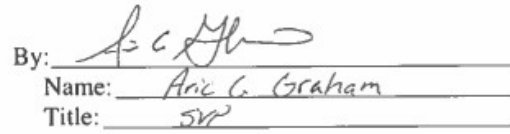 By:
Name: Aric C. Graham
Title: SVP